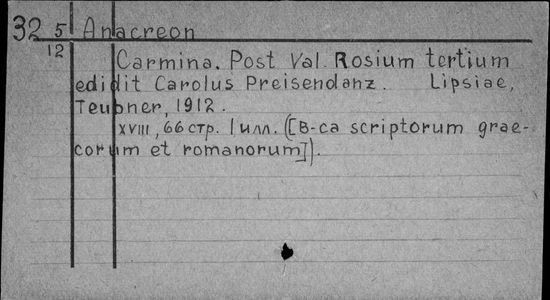 32 5 Anacreon
12 Carmina. Post Val. Rosium tertium
edidit Carolus Preisendanz. Lipsiae,
Teubner, 1912.
XVIII, 66 стр. 1 илл. ([B-ca scriptorum grae-
corum et romanorum]).